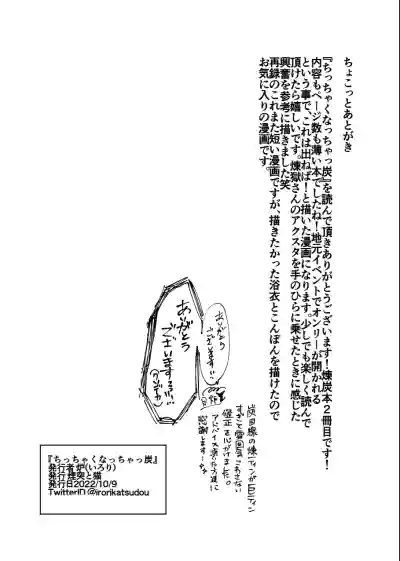 ちょこっとあとがき
『ちっちゃくなっちゃっ炭』を読んで頂きありがとうございます！煉炭本２冊目です！
内容もページ数も薄い本でしたね！地元イベントでオンリーが開かれる
という事で、これは出ねば！と描いた漫画になります。少しでも楽しく読んで
頂けたら嬉しいです。煉獄さんのアクスタを手のひらに乗せたときに感じた
興奮を参考に描きました笑
再録のこれまた短い漫画ですが、描きたかった浴衣とこんぽんを描けたので
お気に入りの漫画です。
ありがとう
ございます!!
炭目線の煉
アドバイス
感謝します
『ちっちゃくなっちゃっ炭』
発行者 炉(いろり)
発行 煙突と猫
発行日2022/10/9
TwitterID @irorikatsudou